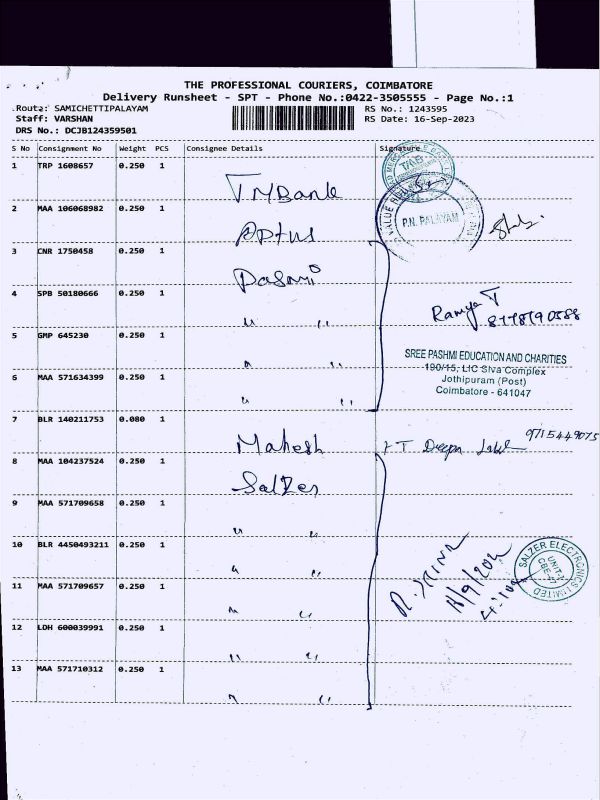 THE PROFESSIONAL COURIERS, COIMBATORE
Delivery Runsheet - SPT - Phone No.:0422-3505555 - Page No.:1
Route: SAMICHETTIPALAYAM RS No.: 1243595
Staff: VARSHAN RS Date: 16-Sep-2023
DRS No.: DCJB124359501
S No Consignment No Weight PCS Consignee Details Signature
1 TRP 1608657 0.250 1
TMBank
TAB
2 MAA 106068982 0.250 1
P.N. PALAYAM
Aptus
3 CNR 1750458 0.250 1
Pasmi
4 SPB 50180666 0.250 1
Ramya T
" "
5 GMP 645230 0.250 1
SREE PASHMI EDUCATION AND CHARITIES
190/15, LIC Siva Complex
Jothipuram (Post)
Coimbatore - 641047
" "
6 MAA 571634399 0.250 1
" "
7 BLR 140211753 0.080 1
9715449075
Mahesh
8 MAA 104237524 0.250 1
Salzer
9 MAA 571709658 0.250 1
" "
10 BLR 4450493211 0.250 1
SALZER ELECTRONICS LIMITED
" "
11 MAA 571709657 0.250 1
" "
12 LDH 600039991 0.250 1
" "
13 MAA 571710312 0.250 1
" "